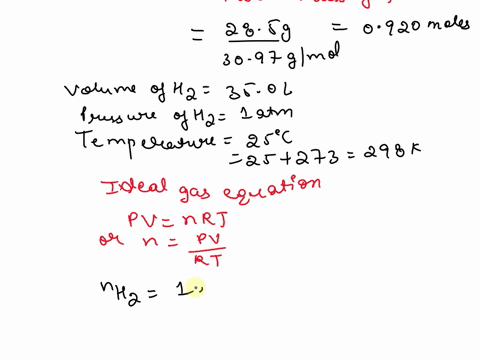 = 28.5g / 30.97 g/mol = 0.920 moles
Volume of H2 = 35.0L
Pressure of H2 = 1 atm
Temperature = 25°C
= 25 + 273 = 298 K
Ideal gas equation
PV = nRT
or n = PV / RT
nH2 = 1.